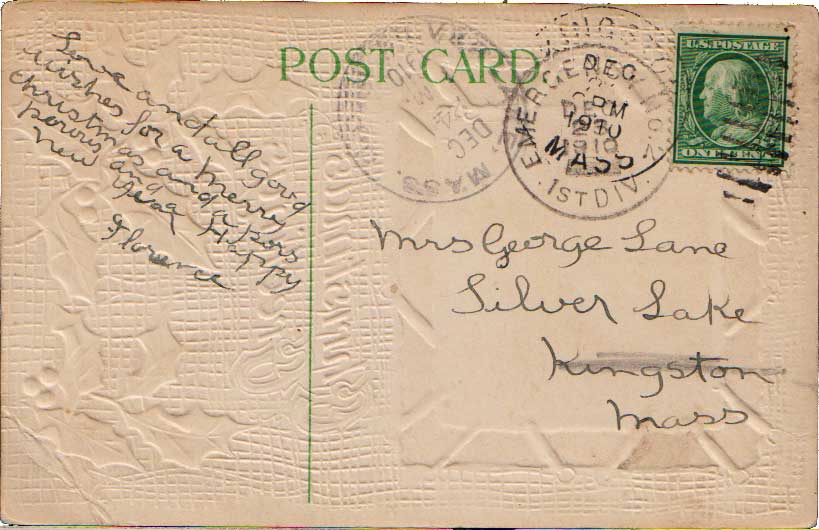 POST CARD.
U.S. POSTAGE
ONE CENT
DEC
1910
MASS.
1ST DIV.
DEC
MASS.
Love and all good
wishes for a Merry
Christmas and a pors
porous and Happy
New Year
Florence
Mrs George Lane
Silver Lake
Kingston
Mass